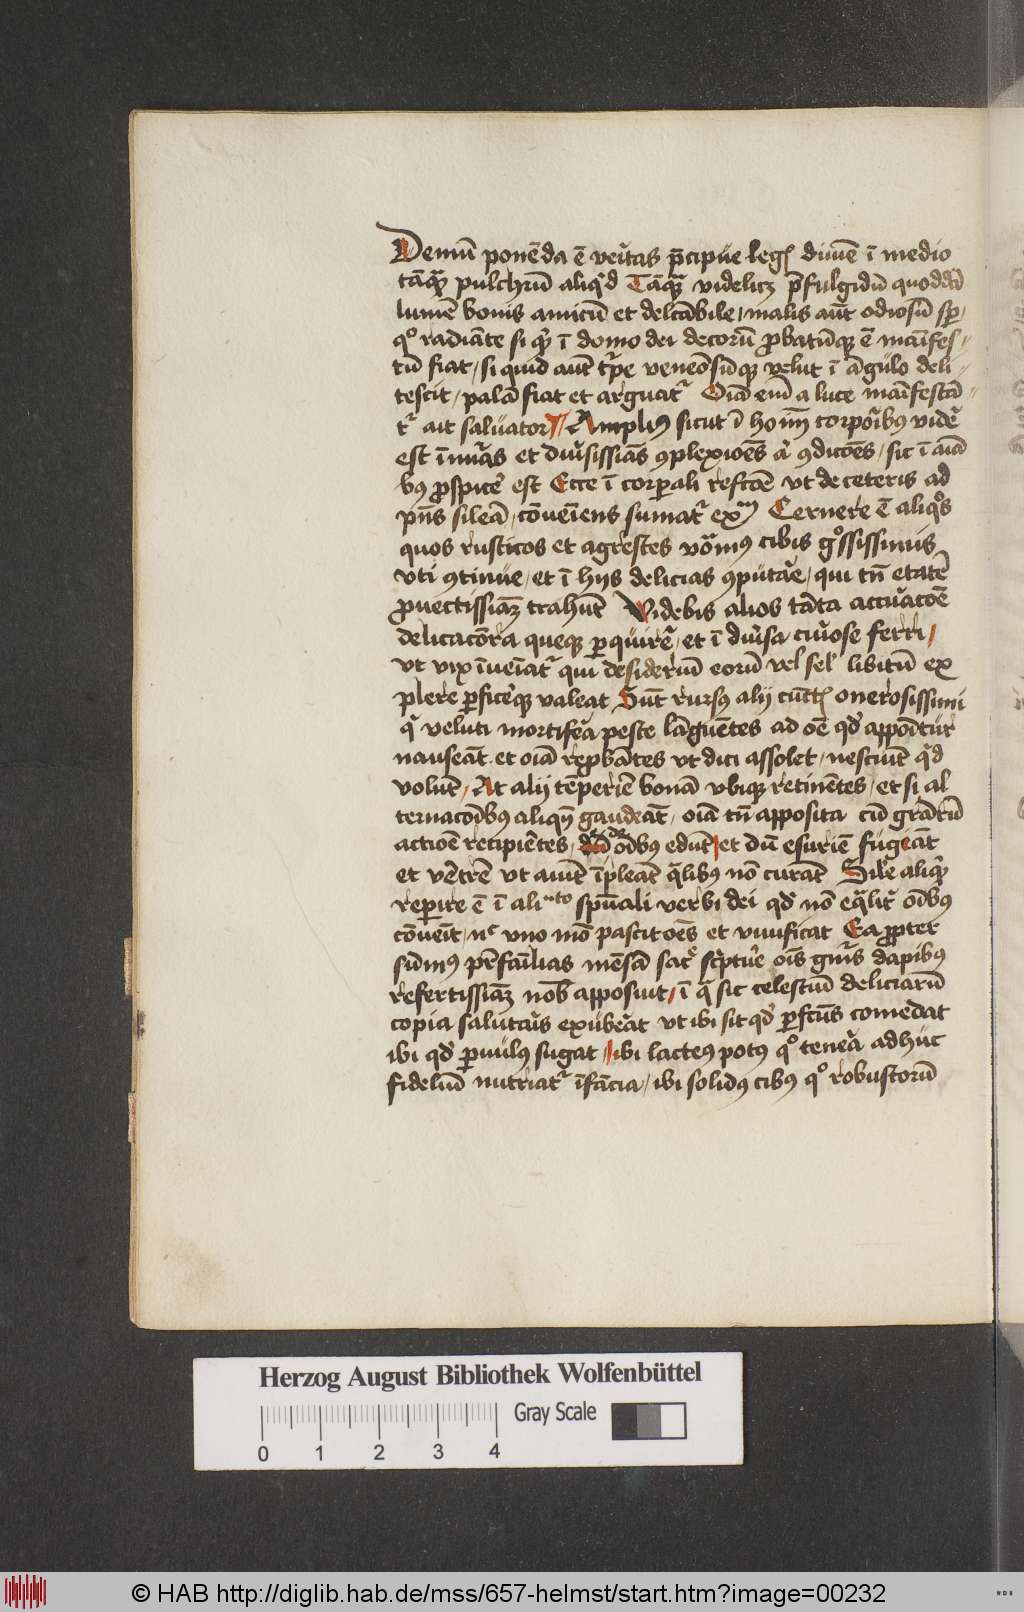 Demū ponēda ē veitas p̄cipue legꝭ diuīe ī medio
tāqꝫ pulchrū aliqd Tāqꝫ videlicꝫ p̄fulgidū quoddā
lumē bonis amicū et delcābile / malis aūt odiosū
qͦ radiāte si qͥs ī domo dei decorū ꝓbatūqꝫ ē māīfes-
tū fiat / si quid aut tͥpe venenōsūqꝫ velut ī āgulo deli-
tescit / palā fiat et arguatᷣ Oīā em̄ a luce māīfestā-
tᷣ ait saluator Ampliꝰ sicut ī hoīm corporibꝰ videᷣ
est īnuͣas et diuͥsissiās ꝯplexiōes a ꝯdicōes / sic ī aīa
bꝰ ꝓspicē est Ecce ī corꝑali refcōe vt de ceteris ad
pn̄s sileā / cōueīens sumatᷣ exᵐ Cernere ē aliqͦs
quos rusticos et agrestes vōmꝰ cibis gͦssissimis
vti ꝯtinue / et ī hijs delicias ꝯputāe / qui tn̄ etatē
ꝓuectissiāꝫ trahūt Videbis alios tāta accuͣacōe
delicacōra queqꝫ ꝑquirē / et ī diuͥsa ciuͦose ferri /
vt vix īueīatᷣ qui desideriū eorū vel sel̄ libitū ex
plere ꝑficeͤqꝫ valeat Sūt rursꝰ alij cūctꝭ onerosissimi
qͥ veluti mortifeͣa peste lāguētes ad oē qd̄ appōitur
nauseāt et oīa reꝓbātes vt dici assolet / nesciūt qͥd
volūt / At alij tēperiē bonā vbiqꝫ retinētes / et si al
ternacōibꝰ aliqn̄ gaudeāt / oīa tn̄ apposita cū grār̄ū
actiōe recipiētes / de oībꝰ edūt et dū esuriē fugiāt
et vētrē vt aiūt īpleāt qͣlibꝰ nō curāt Sil̄e aliqͥd
reꝑire ē ī aliᵐᵗᵒ spūali verbi dei qd̄ nō eqͣlitᷣ oībꝰ
cōueīt / nᶜ vno mō pascit oēs et viuificat Ea ꝓpter
sūmꝰ pr̄failīas mēsā sacͤ scpͥtuͤe oīs gnͥis dapibꝰ
refertissiāꝫ nob̄ apposuit / ī qͣ sic celestiū deliciarū
copia salutaͥs exubeͣat vt ibi sit qd̄ ꝑfcūs comedat
ibi qd̄ ꝑuulꝰ sugat / ibi lacteꝰ potꝰ qͦ teneͣa adhuc
fideliū nutriatᷣ īfācia / ibi solidꝰ cibꝰ qͦ robustorū
Herzog August Bibliothek Wolfenbüttel
Gray Scale
0 1 2 3 4
© HAB http://diglib.hab.de/mss/657-helmst/start.htm?image=00232